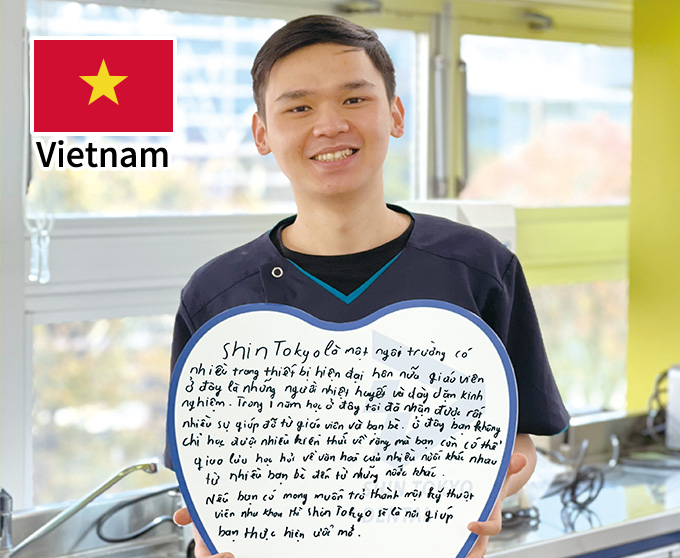 Vietnam
Shin Tokyo là một ngôi trường có
nhiều trang thiết bị hiện đại hơn nữa giáo viên
ở đây là những người nhiệt huyết và dày dặn kinh
nghiệm. Trong 1 năm học ở đây tôi đã nhận được rất
nhiều sự giúp đỡ từ giáo viên và bạn bè. ở đây bạn không
chỉ học được nhiều kiến thức về răng mà bạn còn có thể
giao lưu học hỏi về văn hoá của nhiều nước khác nhau
từ nhiều bạn bè đến từ những nước khác.
Nếu bạn có mong muốn trở thành một kỹ thuật
viên nha khoa thì Shin Tokyo sẽ là nơi giúp
bạn thực hiện ước mơ.